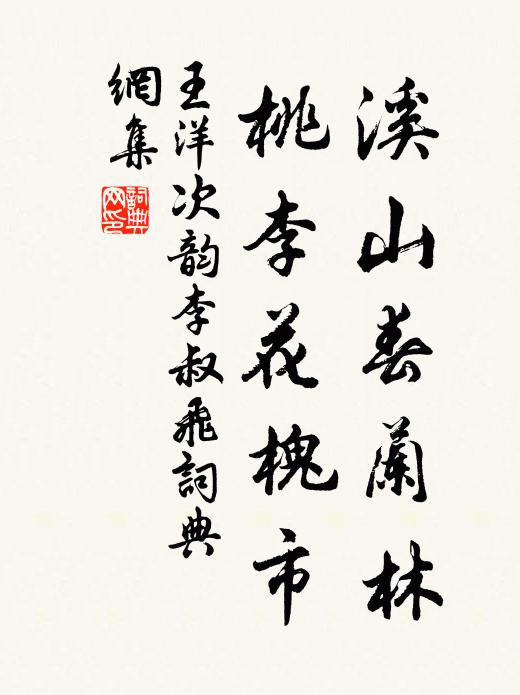 溪山春蘭林
桃李花槐市
王洋次韵李叔飛詞典
網集
詞典
网印